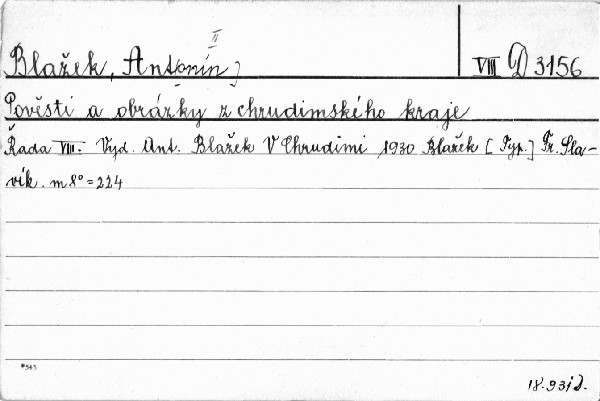 II
Blažek, Antonín,
VIII D 3156
Pověsti a obrázky z chrudimského kraje
Řada VIII. Vyd. Ant. Blažek V Chrudimi 1930 Blažek [Typ.] Fr. Sla-
vík. m 8° = 224
18.931